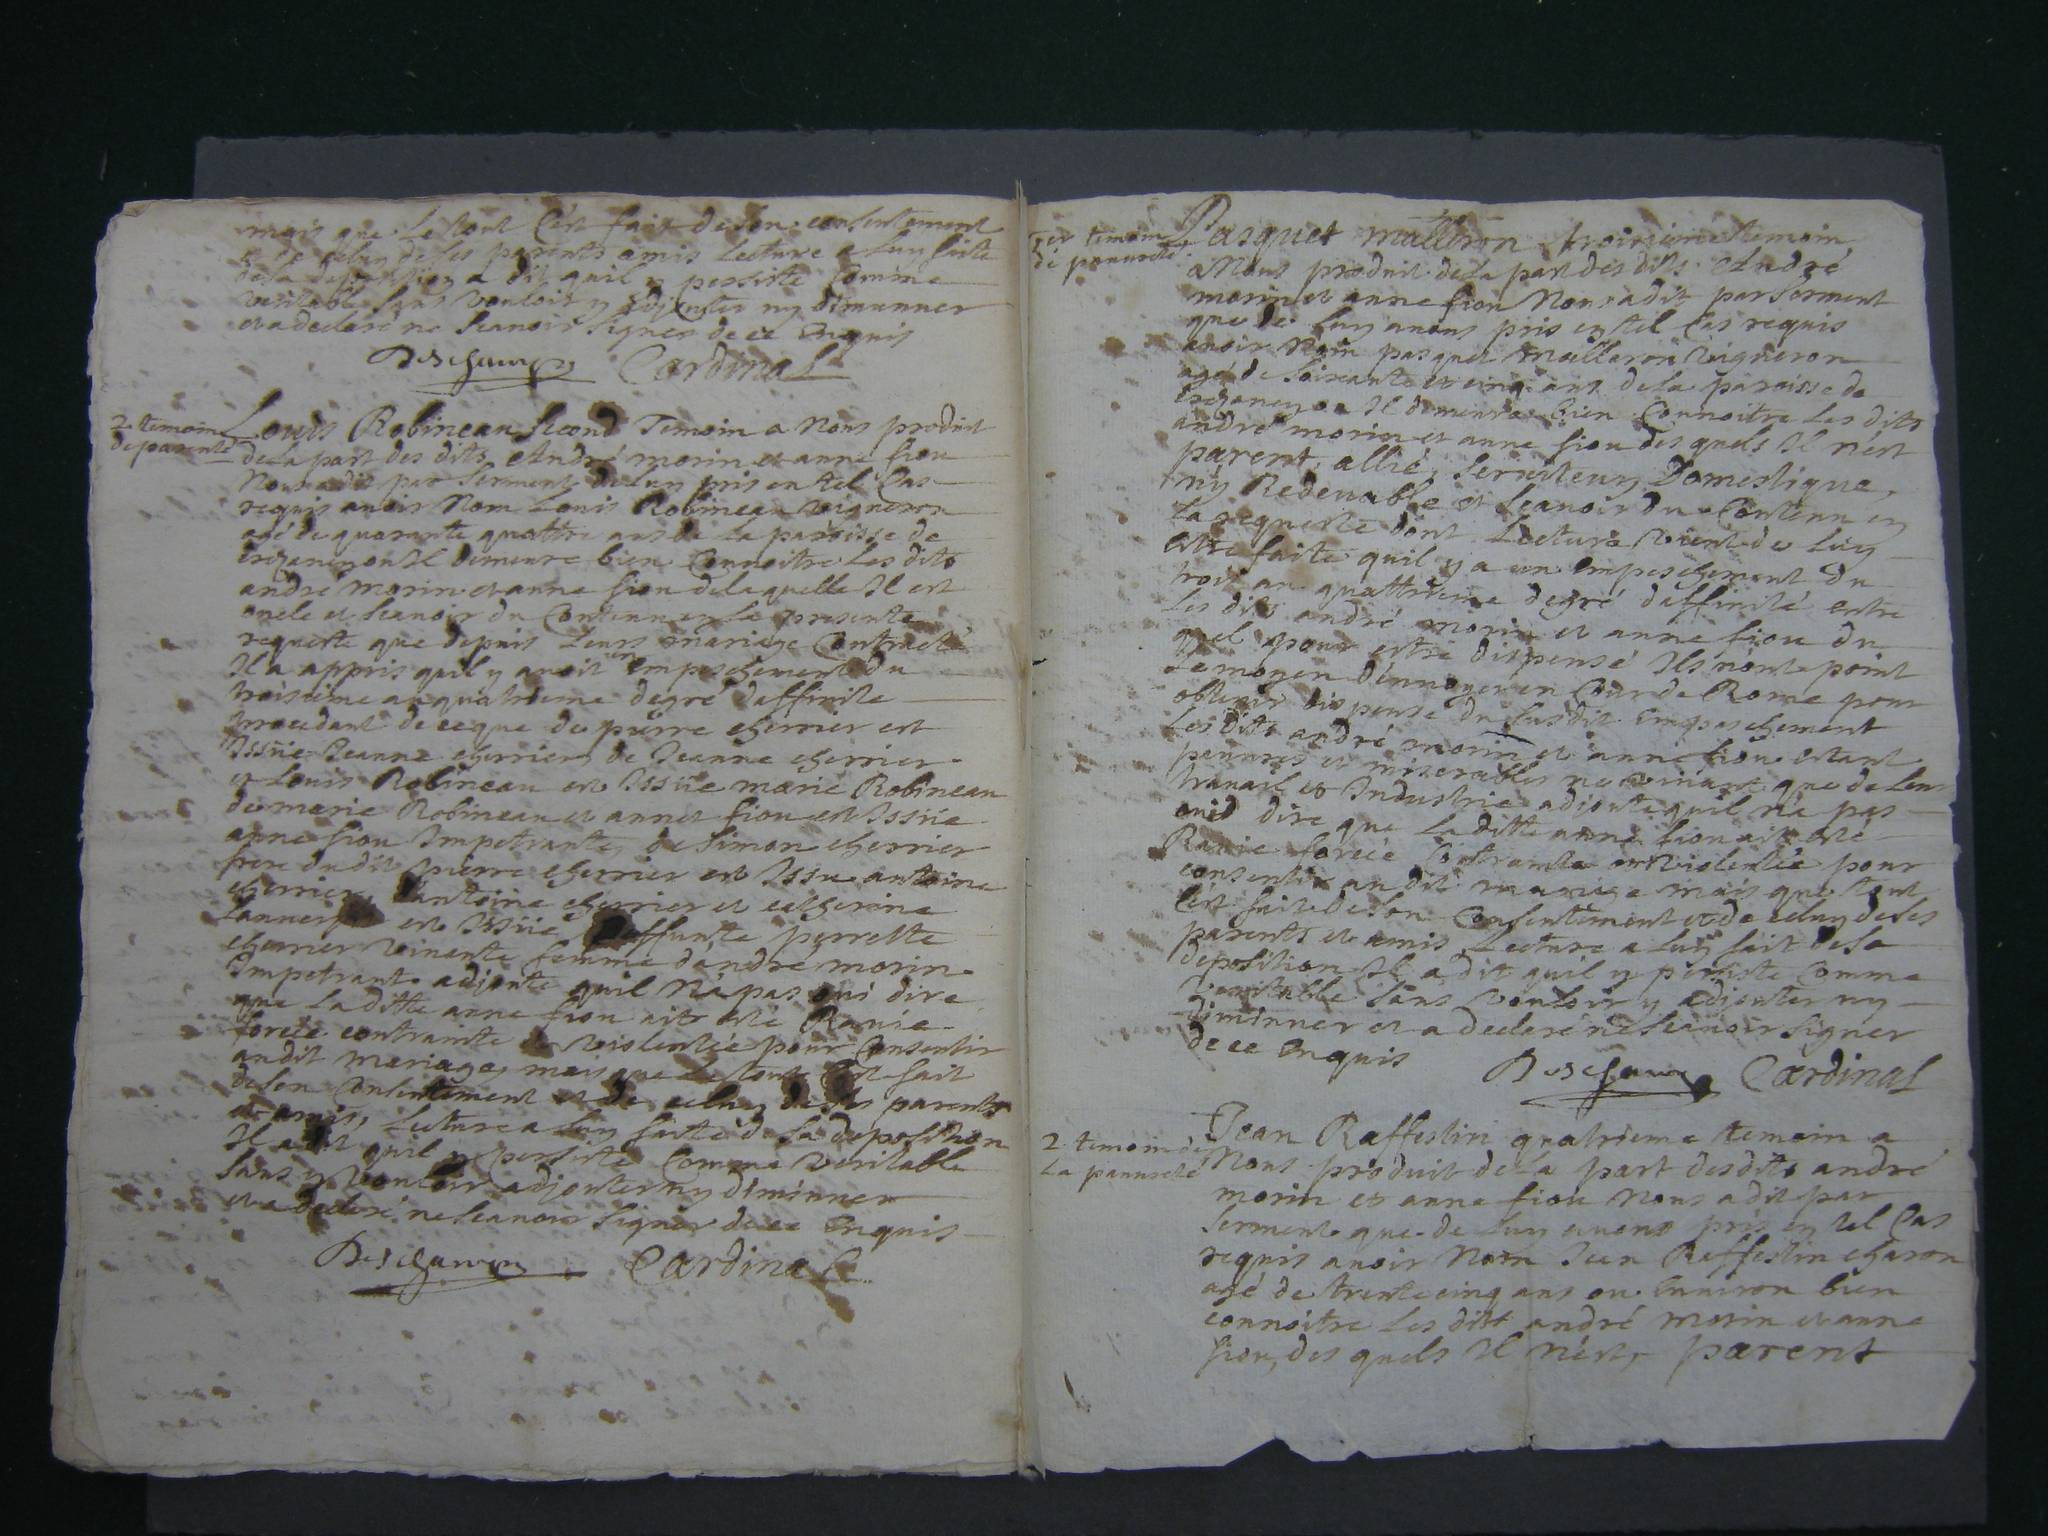 mais que le tout c'est fait de son consentement
et de celuy de ses parents amis lecture a luy faite
de sa deposition a dit quil y persiste comme
veritable sans vouloir y adjouter ny diminuer
et a declaré ne scavoir signer de ce enquis
Cardinal
2 temoin
de parenté
Louis Robineau second Temoin a nous produit
de la part des dits André morin et anne fiou
Nous a dit par serment de luy pris en tel cas
requis avoir nom Louis Robineau vigneron
agé de quarante quattre ans de la paroisse de
ou Il demeure bien connoitre les dits
andre morin et anne fiou de laquelle Il est
oncle et scavoir du contenu en la presente
requeste que depuis leurs mariage contracté
Il a appris quil y avoit un empeschement du
troisieme au quatrieme degré daffinite
procedant de ce que de pierre cherrier est
Issüe Jeanne cherrier de Jeanne cherrier
et Louis Robineau est Issüe marie Robineau
de marie Robineau et annet fiou est Issüe
anne fiou Impetrante, de simon cherrier
frere du dit pierre cherrier est Issu antoine
cherrier, d'antoine cherrier et catherine
est Issüe deffunte perrette
cherrier vivante femme dandré morin
Impetrant adjoute quil na pas oui dire
que la ditte anne fiou ait esté Ravie
forcée contrainte et violentée pour consentir
au dit mariage, mais que le tout c'est fait
de son consentement et de celuy de ses parents
et amis, lecture a luy faite de sa deposition
Il a dit quil y persiste comme veritable
sans y vouloir adjouter ny diminuer
et a declaré ne scavoir signer de ce enquis
Cardinal
1er temoin
de pauureté
Pasquet malleron troisieme temoin
a Nous produit de la part des dits André
morin et anne fiou Nous a dit par serment
que de luy avons pris en tel cas requis
avoir Nom pasquet malleron vigneron
agé de soixante et cinq ans de la paroisse de
ou Il demeure bien connoitre les dits
andré morin et anne fiou des quels Il n'est
parent, allié, serviteur, Domestique,
ny Redevable et scavoir du contenu en
la requeste dont lecture vient de luy
estre faite quil y a un empeschement du
trois au quattrieme degré daffinité entre
les dits andré morin et anne fiou du
quel pour estre dispensé Ils nont point
le moyen d'envoyer en cour de Rome pour
obtenir dispense du susdit empeschement
les dits andré morin et anne fiou estant
pauvres et miserables ne vivant que de leur
travail et Industrie adjoute quil na pas
ouid dire que la ditte anne fiou ait esté
Ravie forcée contrainte et violentée pour
consentir au dit mariage mais que tout
c'est fait de son consentement et de celuy de ses
parents et amis lecture a luy fait de sa
deposition Il a dit quil y persiste comme
veritable sans vouloir y adjouter ny
diminuer et a declaré ne scavoir signer
de ce enquis
Cardinal
2 temoin de
la pauureté
Jean Raffestin quatrieme temoin a
Nous produit de la part des dits andré
morin et anne fiou nous a dit par
serment que de luy avons pris en tel cas
requis avoir Nom Jean Raffestin charon
agé de trente cinq ans ou environ bien
connoitre les dits andré morin et anne
fiou, des quels Il n'est, parent